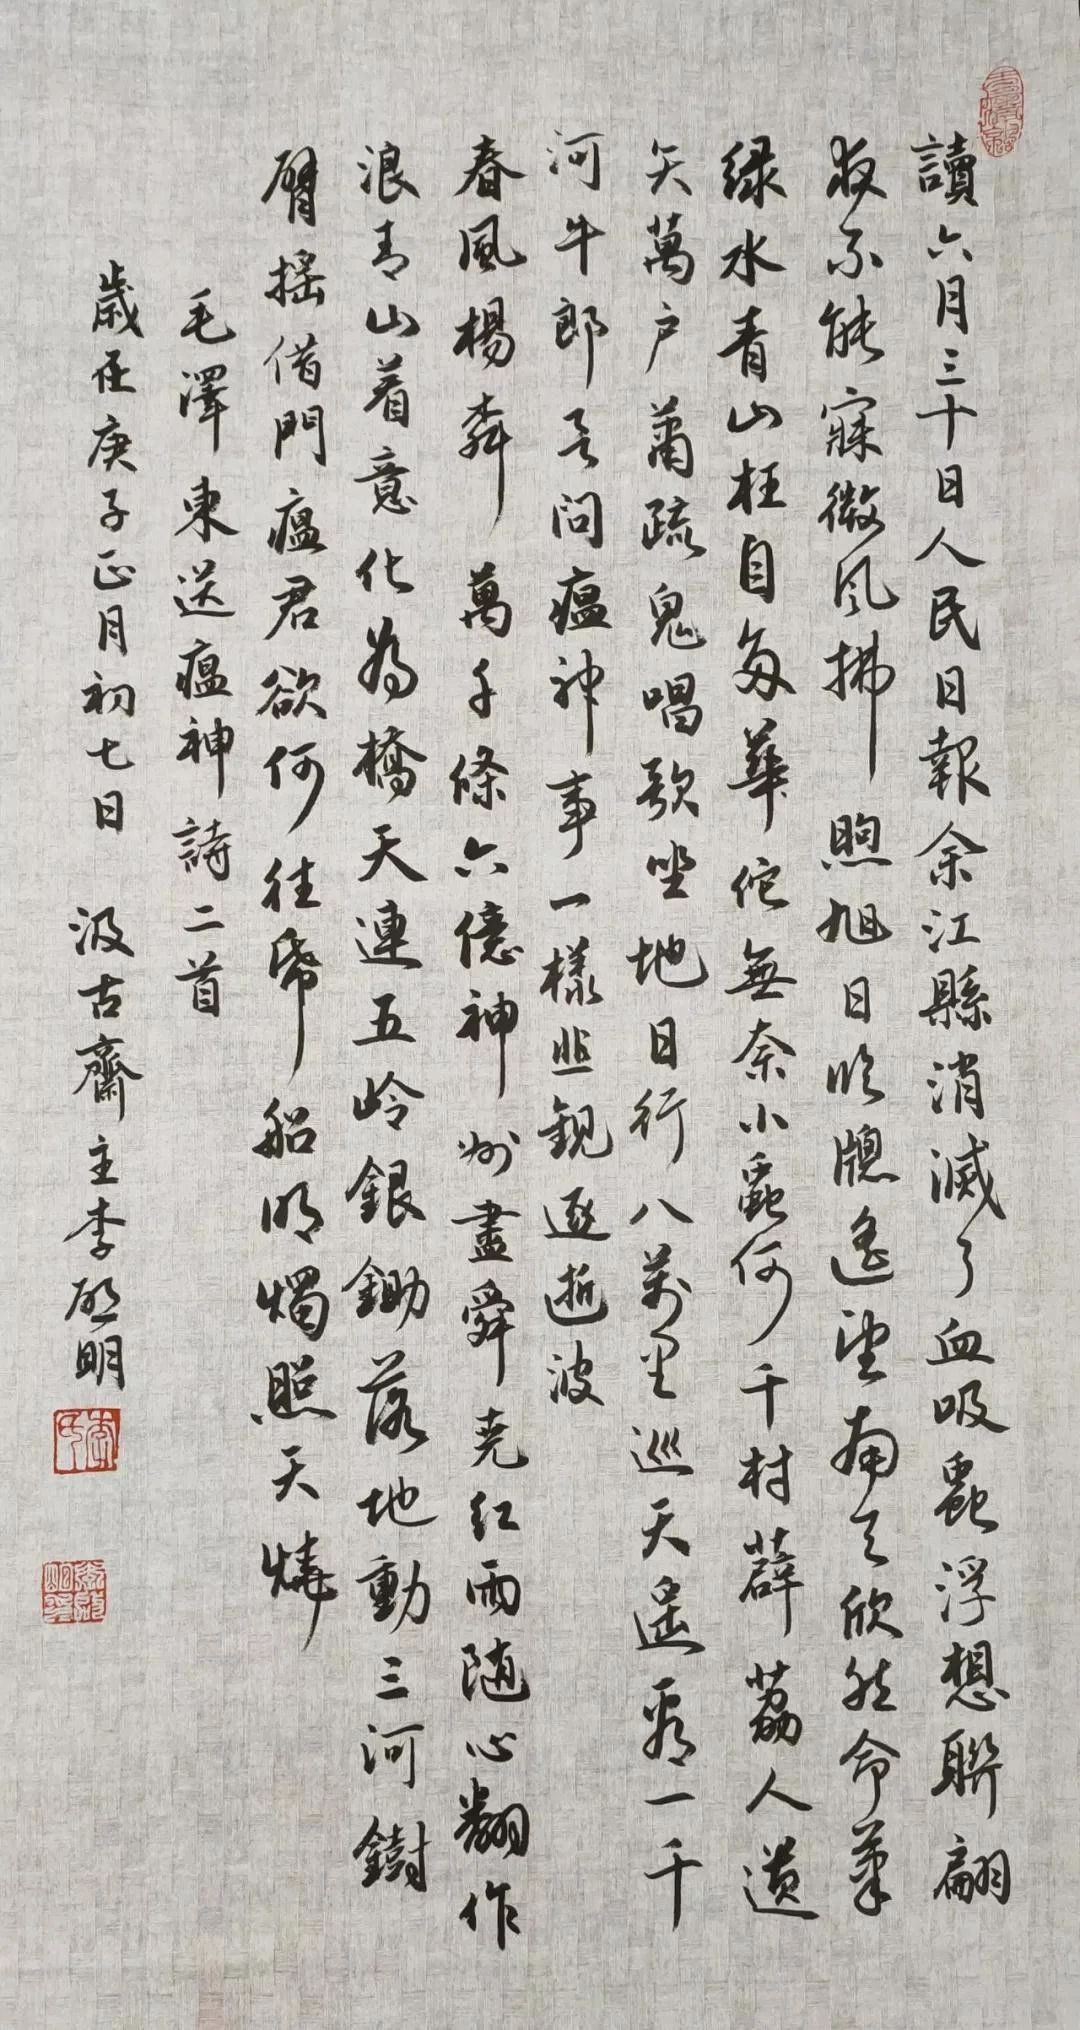 讀六月三十日人民日報余江縣消滅了血吸蟲浮想聯翩
夜不能寐微風拂煦旭日臨牕遙望南天欣然命筆
綠水青山枉自多華佗無奈小蟲何千村薜荔人遺
矢萬户蕭疏鬼唱歌坐地日行八萬里巡天遥看一千
河牛郎若問瘟神事一樣悲觀逐逝波
春風楊柳萬千條六億神州盡舜堯红雨随心翻作
浪青山着意化为橋天連五岭銀鋤落地動三河鐵
臂摇借問瘟君欲何往帋船明燭照天燒
毛澤東送瘟神詩二首
歲在庚子正月初七日 汲古齋主李啟明